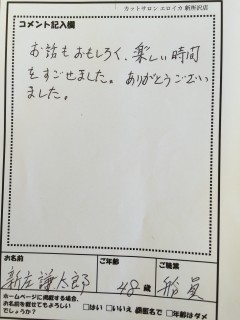 カットサロン エロイカ 新所沢店
コメント記入欄
お話もおもしろく、楽しい時間
をすごせました。ありがとうござい
ました。
お名前
ご年齢
ご職業
新庄謙太郎
48 歳
船員
ホームページに掲載する場合、
お名前を載せてもよろしい
でしょうか?
□はい □いいえ 匿名で □年齢はダメ